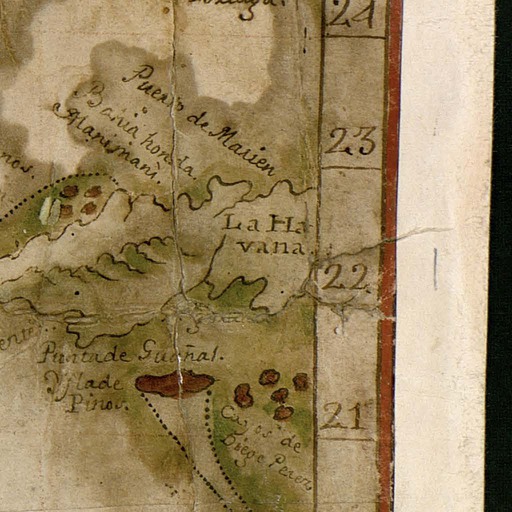 24
23
Puerto de Marien
Bahia honda
Manimani.
nos.
La Ha-
vana
22
Punta de Guañal.
Yslade
Pinos.
21
Cayos de
Diego Perez